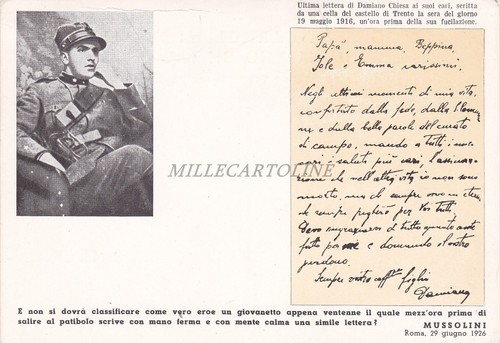 Ultima lettera di Damiano Chiesa ai suoi cari, scritta
da una cella del castello di Trento la sera del giorno
19 maggio 1916, un'ora prima della sua fucilazione.
Papà, mamma, Beppina,
Jole e Emma carissimi,
Negli ultimi momenti di mia vita,
confortato dalla fede, dalla S. Comunio
ne e dalla bella parola del curato
di campo, mando a tutti i miei
cari i saluti più cari, l'assicura
zione che nell'altra vita io non sono
morto, ma che sempre vivo in eterno,
che sempre pregherò per Voi tutti.
Devo ringraziarvi di tutto quanto avete
fatto per me e domando il vostro
perdono.
Sempre vostro aff.mo figlio
Damiano
MILLECARTOLINE
E non si dovrà classificare come vero eroe un giovanetto appena ventenne il quale mezz'ora prima di
salire al patibolo scrive con mano ferma e con mente calma una simile lettera?
MUSSOLINI
Roma, 29 giugno 1926